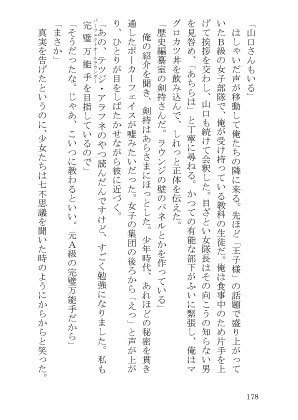 「山口さんもいる」
　はしゃいだ声が移動して俺たちの隣に来る。先ほど「王子様」の話題で盛り上がって
いたＢ級の女子部隊で、俺が受け持っている教科の生徒だ。俺は食事中のため片手を上
げて挨拶を交わし、山口も続けて会釈した。目ざとい女隊長はその向こうの知らない男
を見咎め、「あちらは」と丁寧に尋ねる。かつての有能な部下がふいに緊張し、俺はマ
グロカツ丼を飲み込んで、しれっと正体を伝えた。
「歴史編纂室の剣持さんだ。ラウンジの壁のパネルとかを作っている」
　俺の紹介を聞き、剣持はあらさまにほっとした。少年時代、あれほどの秘密を貫き
通したポーカーフェイスが嘘みたいだった。女子の集団の後ろから「えっ」と声が上が
り、ひとりが目をしばたかせながら彼に近づく。
「あの、テツジ・アラフネのやつ読んだんですけど、すごく勉強になりました。私も
完璧万能手を目指しているので」
パーフェクトオールラウンダー
「そうだったな。じゃあ、こいつに教わるといい。元Ａ級の完璧万能手だから」
「まさか」
　真実を告げたというのに、少女たちは七不思議を聞いた時のようにからからと笑った。
178